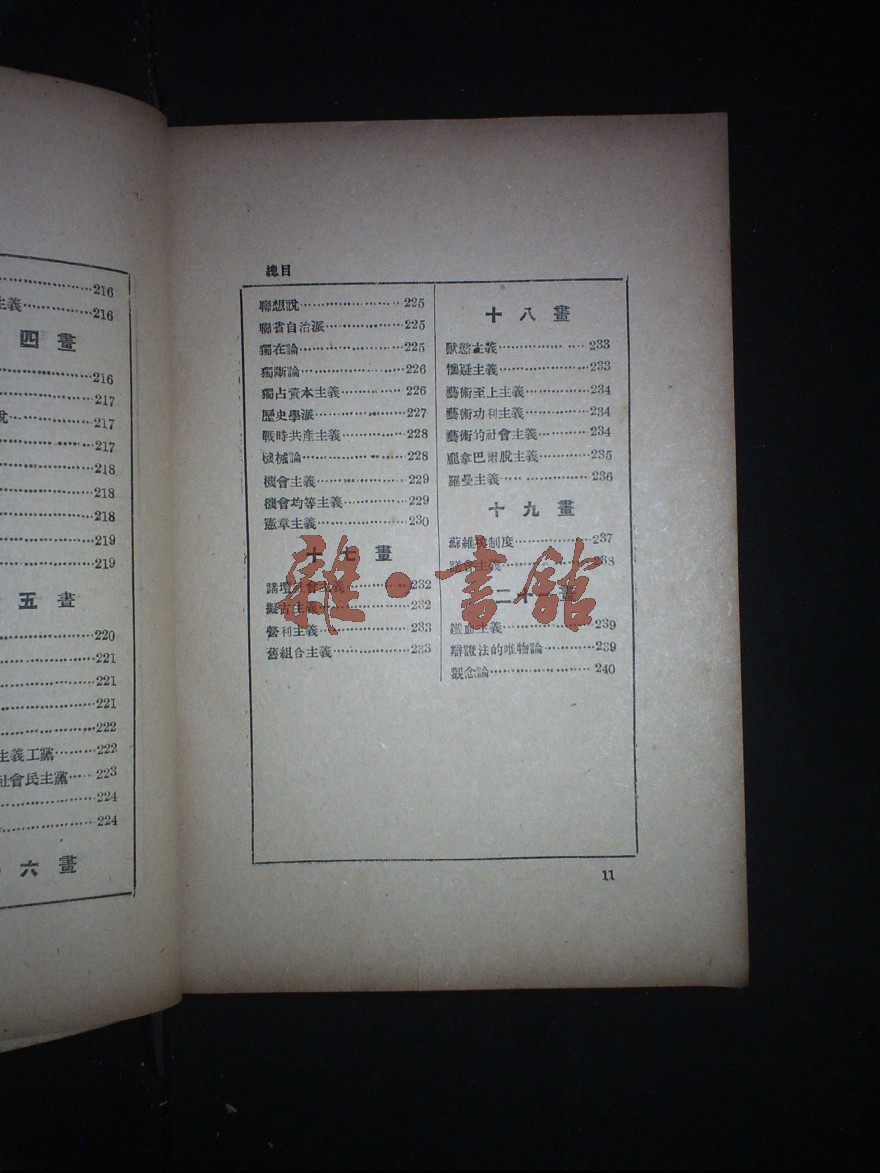 216
主義 216
四畫
216
217
說 217
217
218
218
218
219
219
五畫
220
221
221
221
222
主義工黨 222
社會民主黨 223
224
224
六畫
總目
聯想說 225
聯省自治派 225
獨在論 225
獨斷論 226
獨占資本主義 226
歷史學派 227
戰時共產主義 228
機械論 228
機會主義 229
機會均等主義 229
憲章主義 230
十七畫
講壇社會主義 232
擬古主義 232
營利主義 233
舊組合主義 233
十八畫
獸慾主義 233
懷疑主義 233
藝術至上主義 234
藝術功利主義 234
藝術的社會主義 234
龐拿巴爾脫主義 235
羅曼主義 236
十九畫
蘇維埃制度 237
主義 238
二十一畫
鐵血主義 239
辯證法的唯物論 239
觀念論 240
11
雜·書館